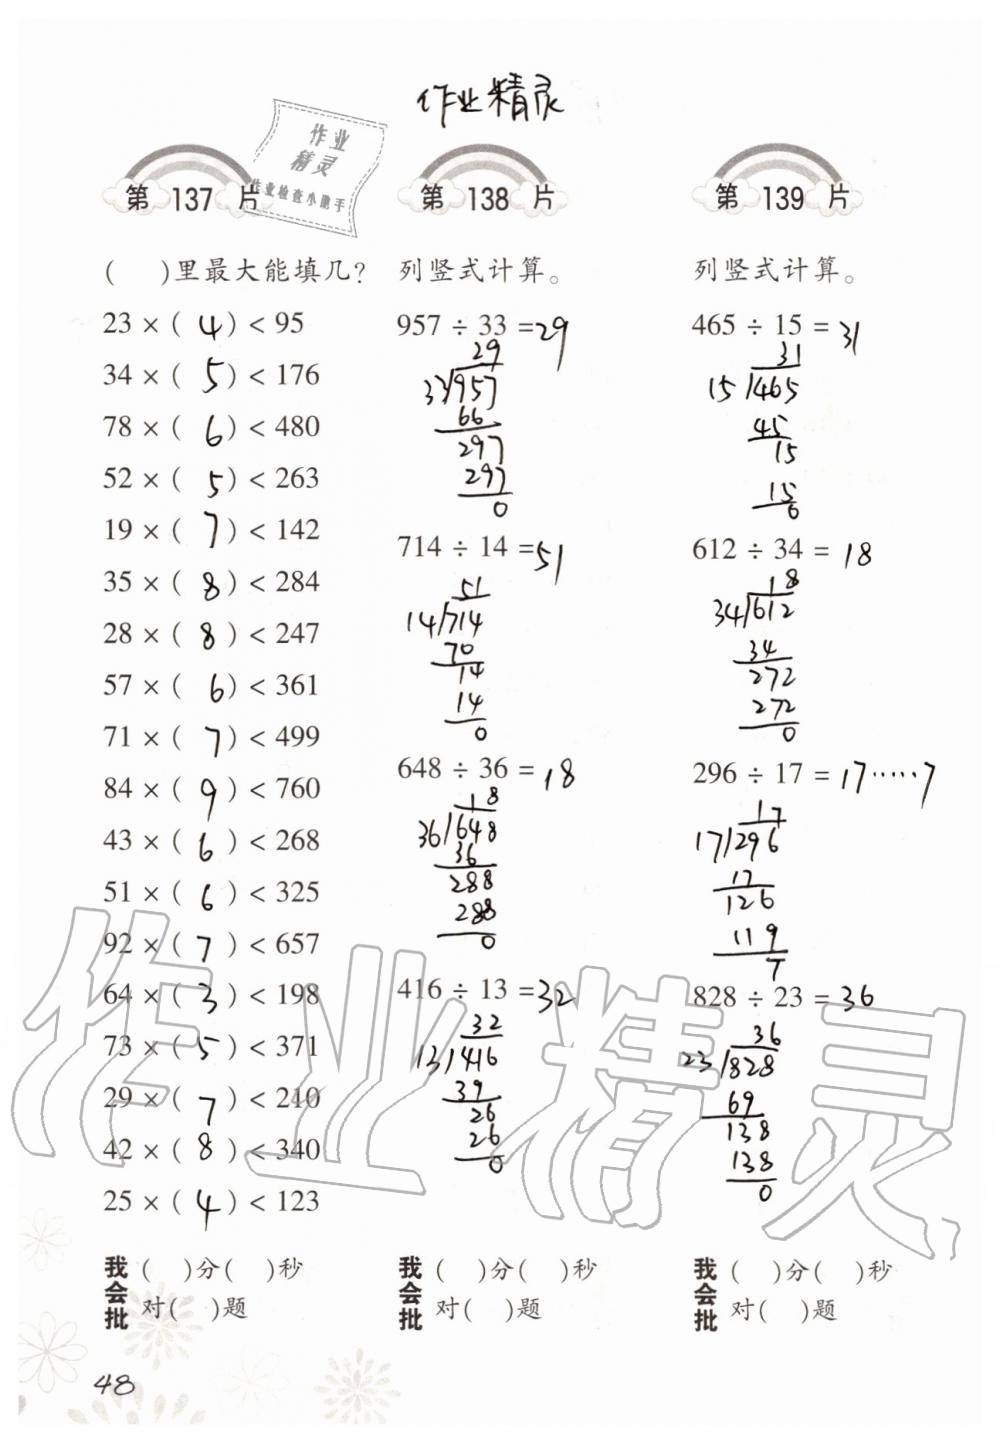 作业精灵
作业
精灵
作业检查小助手
第 137 片
(  )里最大能填几?
23 × ( 4 ) < 95
34 × ( 5 ) < 176
78 × ( 6 ) < 480
52 × ( 5 ) < 263
19 × ( 7 ) < 142
35 × ( 8 ) < 284
28 × ( 8 ) < 247
57 × ( 6 ) < 361
71 × ( 7 ) < 499
84 × ( 9 ) < 760
43 × ( 6 ) < 268
51 × ( 6 ) < 325
92 × ( 7 ) < 657
64 × ( 3 ) < 198
73 × ( 5 ) < 371
29 × ( 7 ) < 210
42 × ( 8 ) < 340
25 × ( 4 ) < 123
我会批
(  )分(  )秒
对(  )题
第 138 片
列竖式计算。
957 ÷ 33 = 29
29
33/957
66
297
297
0
714 ÷ 14 = 51
51
14/714
70
14
14
0
648 ÷ 36 = 18
18
36/648
36
288
288
0
416 ÷ 13 = 32
32
13/416
39
26
26
0
我会批
(  )分(  )秒
对(  )题
第 139 片
列竖式计算。
465 ÷ 15 = 31
31
15/465
45
15
15
0
612 ÷ 34 = 18
18
34/612
34
272
272
0
296 ÷ 17 = 17……7
17
17/296
17
126
119
7
828 ÷ 23 = 36
36
23/828
69
138
138
0
我会批
(  )分(  )秒
对(  )题
作业精灵
48